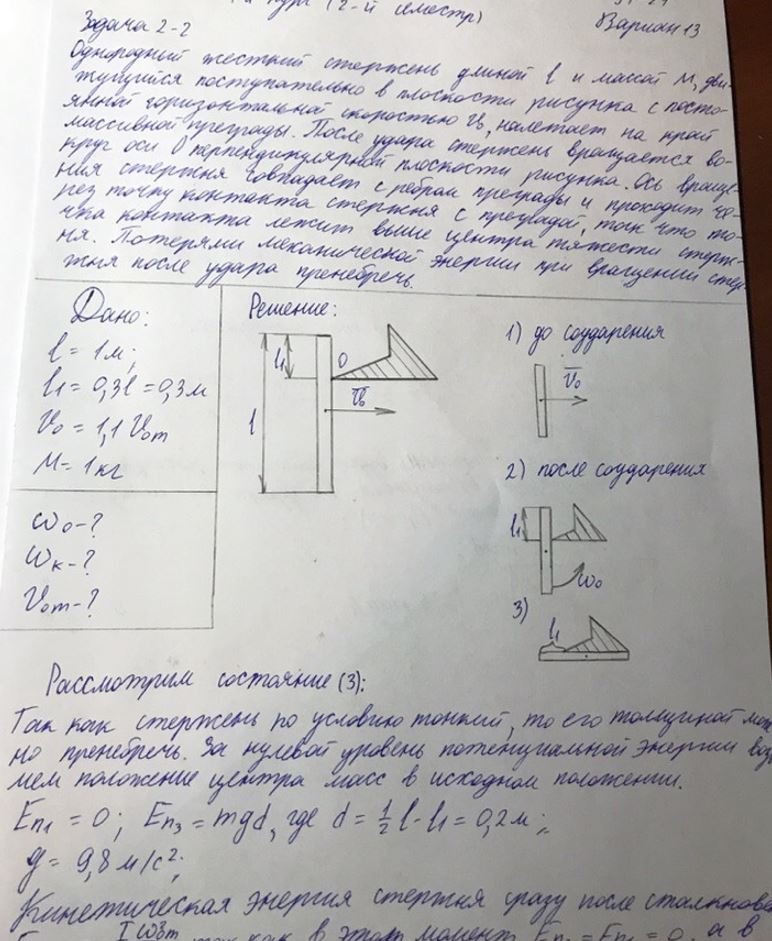 курс (2-й семестр)
Задача 2-2
Вариан 13
Однородный жесткий стержень длиной l и массой М, дви-
жущийся поступательно в плоскости рисунка с посто-
янной горизонтальной скоростью V₀, налетает на край
массивной преграды. После удара стержень вращается во-
круг оси О перпендикулярной плоскости рисунка. Ось враще-
ния стержня совпадает с ребром преграды и проходит че-
рез точку контакта стержня с преградой, так что то-
чка контакта лежит выше центра тяжести стерж-
ня. Потерями механической энергии при вращении стер-
жня после удара пренебречь.
Дано:
l = 1м;
l₁ = 0,3l = 0,3м
V₀ = 1,1 V₀m
M = 1кг
ω₀-?
ωк-?
V₀m-?
Решение:
l₁
O
V₀
l
1) до соударения
V₀
2) после соударения
l₁
ω₀
3)
l₁
Рассмотрим состояние (3):
Так как стержень по условию тонкий, то его толщиной мож
но пренебречь. За нулевой уровень потенциальной энергии возь
мем положение центра масс в исходном положении.
Eп₁ = 0; Eп₃ = mgd, где d = ½l - l₁ = 0,2м;
g = 9,8 м/с²;
Кинетическая энергия стержня сразу после столкнове
так как в этот момент Eп₂ = Eп₁ = 0, а в